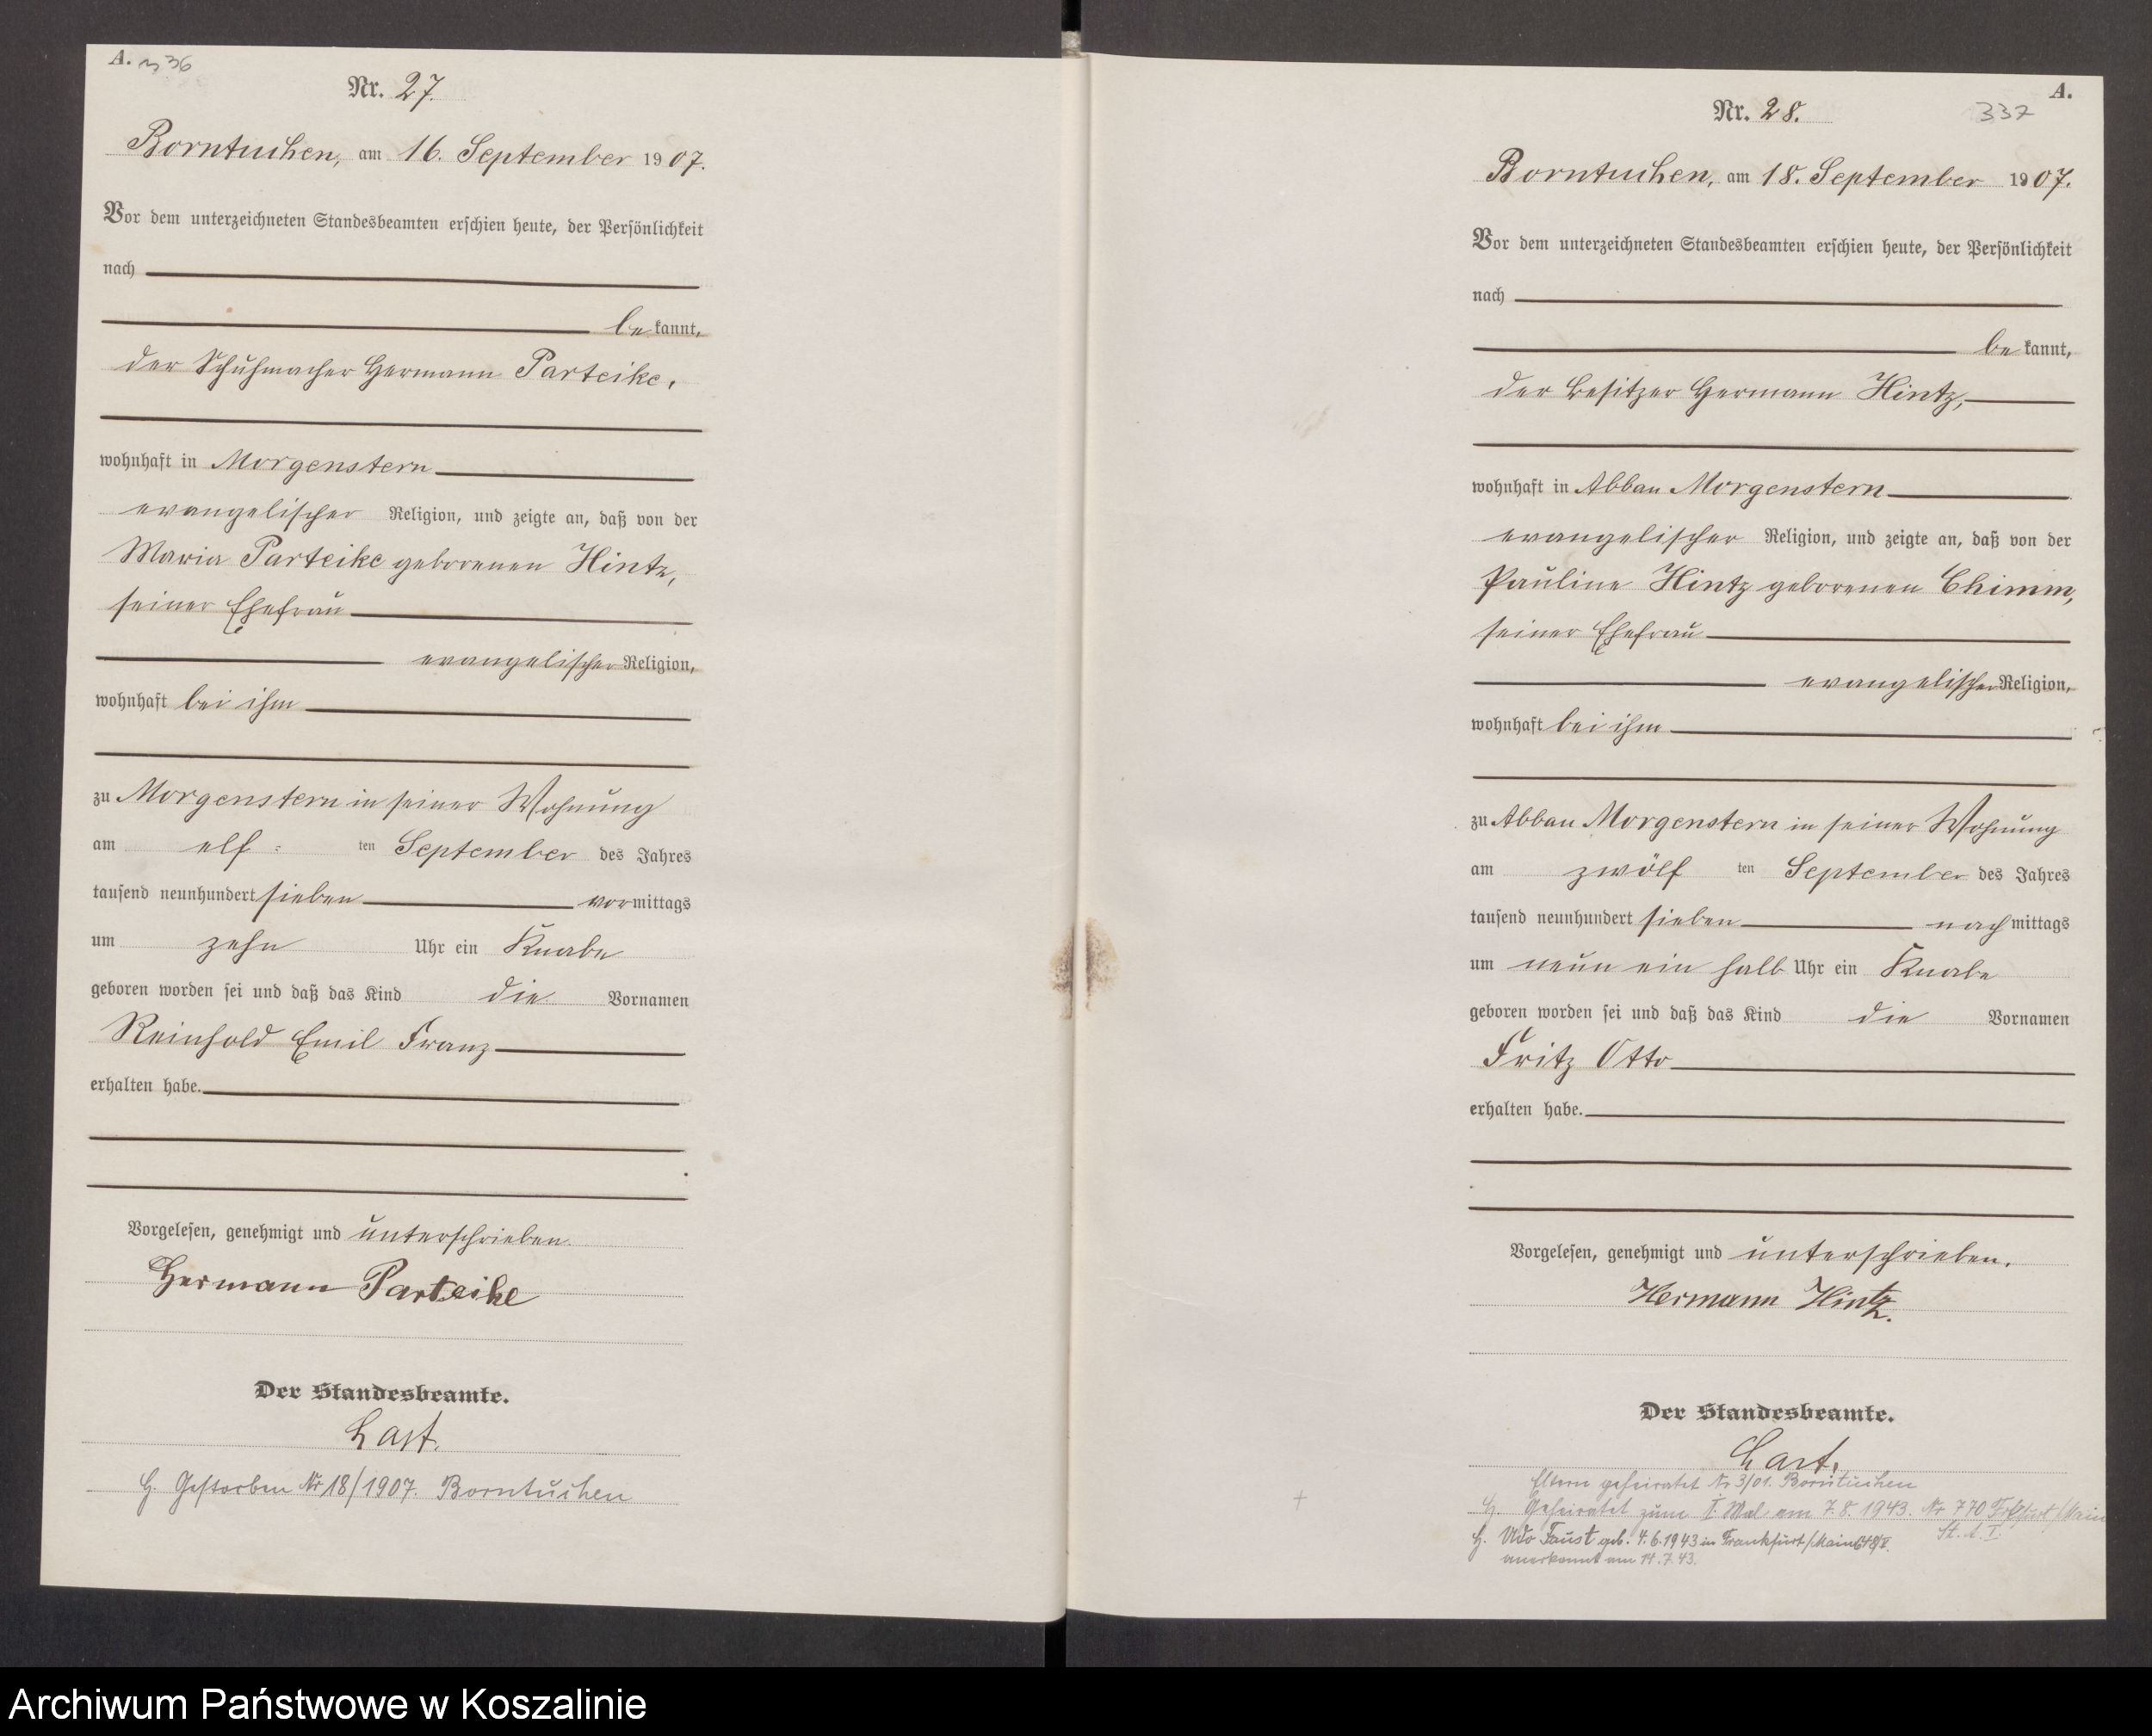 A. 336
Nr. 27.
Borntuchen, am 16. September 1907.
Vor dem unterzeichneten Standesbeamten erschien heute, der Persönlichkeit
nach
be kannt,
der Schuhmacher Hermann Parteike,
wohnhaft in Morgenstern
evangelischer Religion, und zeigte an, daß von der
Maria Parteike geborenen Hintz,
seiner Ehefrau
evangelischer Religion,
wohnhaft bei ihm
zu Morgenstern in seiner Wohnung
am elf ten September des Jahres
tausend neunhundert sieben vormittags
um zehn Uhr ein Knabe
geboren worden sei und daß das Kind die Vornamen
Reinhold Emil Franz
erhalten habe.
Vorgelesen, genehmigt und unterschrieben.
Hermann Parteike
Der Standesbeamte.
Last.
G. Gestorben Nr 18/1907. Borntuchen
A.
Nr. 28. 337
Borntuchen, am 18. September 1907.
Vor dem unterzeichneten Standesbeamten erschien heute, der Persönlichkeit
nach
be kannt,
der Besitzer Hermann Hintz,
wohnhaft in Abbau Morgenstern
evangelischer Religion, und zeigte an, daß von der
Pauline Hintz geborenen Chimm,
seiner Ehefrau
evangelischer Religion,
wohnhaft bei ihm
zu Abbau Morgenstern in seiner Wohnung
am zwölf ten September des Jahres
tausend neunhundert sieben nachmittags
um neun ein halb Uhr ein Knabe
geboren worden sei und daß das Kind die Vornamen
Fritz Otto
erhalten habe.
Vorgelesen, genehmigt und unterschrieben.
Hermann Hintz.
Der Standesbeamte.
Last.
Eltern geheiratet Nr 3/01. Borntuchen
Geheiratet zum I. Mal am 7.8.1943. Nr 770 Frkfurt/Main
St. A. I.
Udo Faust geb. 4.6.1943 in Frankfurt/Main
anerkannt am 14.7.43.
Archiwum Państwowe w Koszalinie